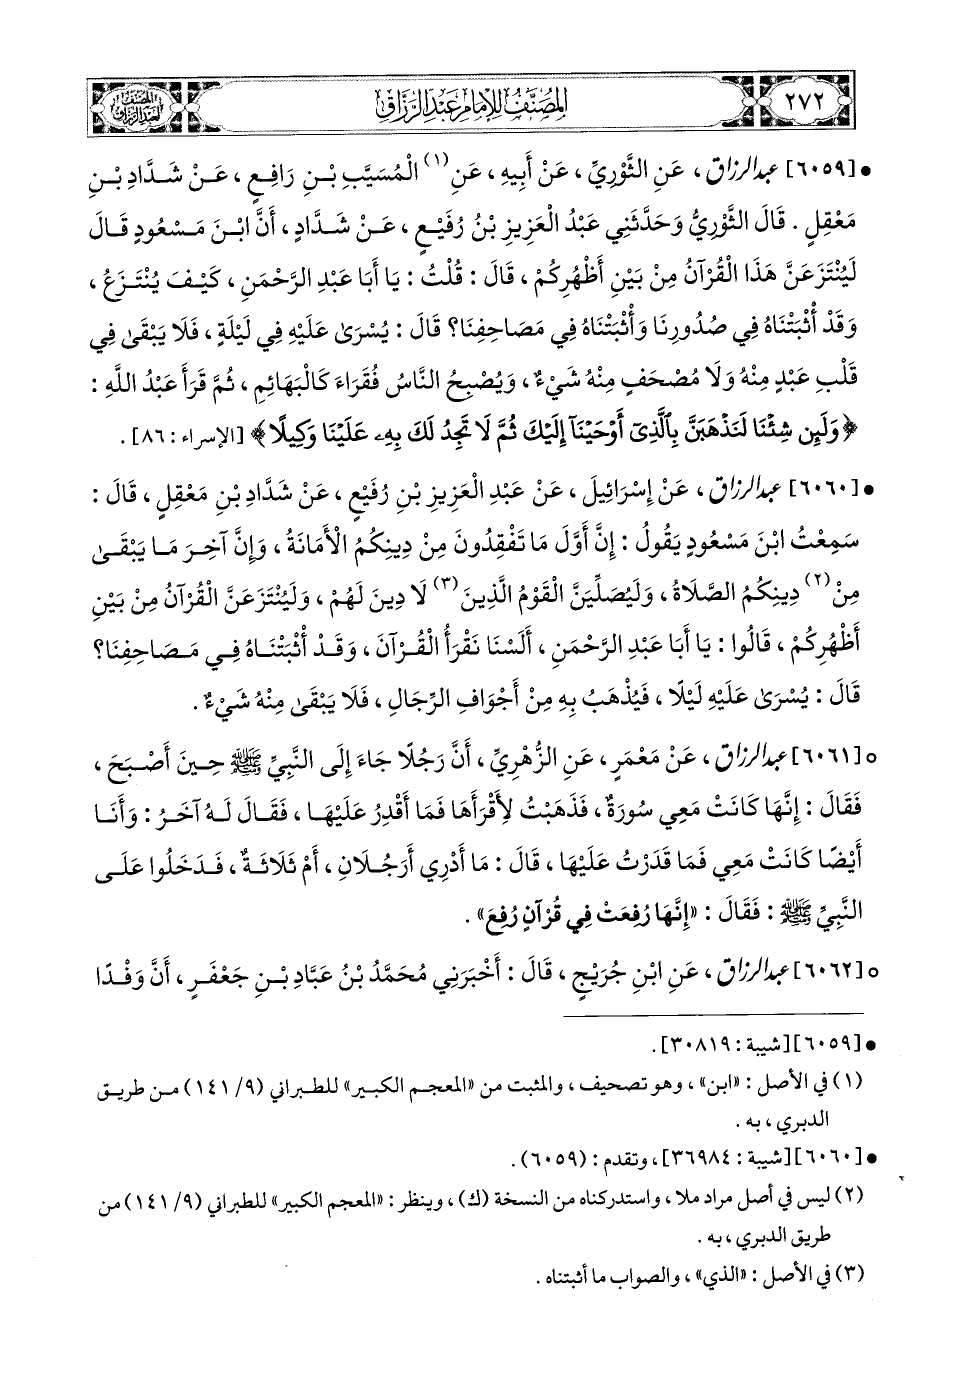 ٢٧٢
المصنف للإمام عبد الرزاق
المصنف لعبد الرزاق
• [٦٠٥٩] عبد الرزاق، عَنِ الثَّوْرِيِّ، عَنْ أَبِيهِ، عَنِ (١) الْمُسَيَّبِ بْنِ رَافِعٍ، عَنْ شَدَّادِ بْنِ
مَعْقِلٍ. قَالَ الثَّوْرِيُّ وَحَدَّثَنِي عَبْدُ الْعَزِيزِ بْنُ رُفَيْعٍ، عَنْ شَدَّادٍ، أَنَّ ابْنَ مَسْعُودٍ قَالَ
لَيُنْتَزَعَنَّ هَذَا الْقُرْآنُ مِنْ بَيْنِ أَظْهُرِكُمْ، قَالَ: قُلْتُ: يَا أَبَا عَبْدِ الرَّحْمَنِ، كَيْفَ يُنْتَزَعُ،
وَقَدْ أَثْبَتْنَاهُ فِي صُدُورِنَا وَأَثْبَتْنَاهُ فِي مَصَاحِفِنَا؟ قَالَ: يُسْرَىٰ عَلَيْهِ فِي لَيْلَةٍ، فَلَا يَبْقَىٰ فِي
قَلْبِ عَبْدٍ مِنْهُ وَلَا مُصْحَفٍ مِنْهُ شَيْءٌ، وَيُصْبِحُ النَّاسُ فُقَرَاءَ كَالْبَهَائِمِ، ثُمَّ قَرَأَ عَبْدُ اللَّهِ:
﴿وَلَئِن شِئْنَا لَنَذْهَبَنَّ بِٱلَّذِىٓ أَوْحَيْنَآ إِلَيْكَ ثُمَّ لَا تَجِدُ لَكَ بِهِۦ عَلَيْنَا وَكِيلًا﴾ [الإسراء: ٨٦].
• [٦٠٦٠] عبد الرزاق، عَنْ إِسْرَائِيلَ، عَنْ عَبْدِ الْعَزِيزِ بْنِ رُفَيْعٍ، عَنْ شَدَّادِ بْنِ مَعْقِلٍ، قَالَ:
سَمِعْتُ ابْنَ مَسْعُودٍ يَقُولُ: إِنَّ أَوَّلَ مَا تَفْقِدُونَ مِنْ دِينِكُمُ الْأَمَانَةُ، وَإِنَّ آخِرَ مَا يَبْقَىٰ
مِنْ (٢) دِينِكُمُ الصَّلَاةُ، وَلَيُصَلِّيَنَّ الْقَوْمُ الَّذِينَ (٣) لَا دِينَ لَهُمْ، وَلَيُنْتَزَعَنَّ الْقُرْآنُ مِنْ بَيْنِ
أَظْهُرِكُمْ، قَالُوا: يَا أَبَا عَبْدِ الرَّحْمَنِ، أَلَسْنَا نَقْرَأُ الْقُرْآنَ، وَقَدْ أَثْبَتْنَاهُ فِي مَصَاحِفِنَا؟
قَالَ: يُسْرَىٰ عَلَيْهِ لَيْلًا، فَيُذْهَبُ بِهِ مِنْ أَجْوَافِ الرِّجَالِ، فَلَا يَبْقَىٰ مِنْهُ شَيْءٌ.
○ [٦٠٦١] عبد الرزاق، عَنْ مَعْمَرٍ، عَنِ الزُّهْرِيِّ، أَنَّ رَجُلًا جَاءَ إِلَى النَّبِيِّ ﷺ حِينَ أَصْبَحَ،
فَقَالَ: إِنَّهَا كَانَتْ مَعِي سُورَةٌ، فَذَهَبْتُ لِأَقْرَأَهَا فَمَا أَقْدِرُ عَلَيْهَا، فَقَالَ لَهُ آخَرُ: وَأَنَا
أَيْضًا كَانَتْ مَعِي فَمَا قَدَرْتُ عَلَيْهَا، قَالَ: مَا أَدْرِي أَرَجُلَانِ، أَمْ ثَلَاثَةٌ، فَدَخَلُوا عَلَى
النَّبِيِّ ﷺ: فَقَالَ: «إِنَّهَا رُفِعَتْ فِي قُرْآنٍ رُفِعَ».
○ [٦٠٦٢] عبد الرزاق، عَنِ ابْنِ جُرَيْجٍ، قَالَ: أَخْبَرَنِي مُحَمَّدُ بْنُ عَبَّادِ بْنِ جَعْفَرٍ، أَنَّ وَفْدًا
• [٦٠٥٩] [شيبة: ٣٠٨١٩].
(١) في الأصل: «ابن»، وهو تصحيف، والمثبت من «المعجم الكبير» للطبراني (٩/ ١٤١) من طريق
الدبري، به.
• [٦٠٦٠] [شيبة: ٣٦٩٨٤]، وتقدم: (٦٠٥٩).
(٢) ليس في أصل مراد ملا، واستدركناه من النسخة (ك)، وينظر: «المعجم الكبير» للطبراني (٩/ ١٤١) من
طريق الدبري، به.
(٣) في الأصل: «الذي»، والصواب ما أثبتناه.